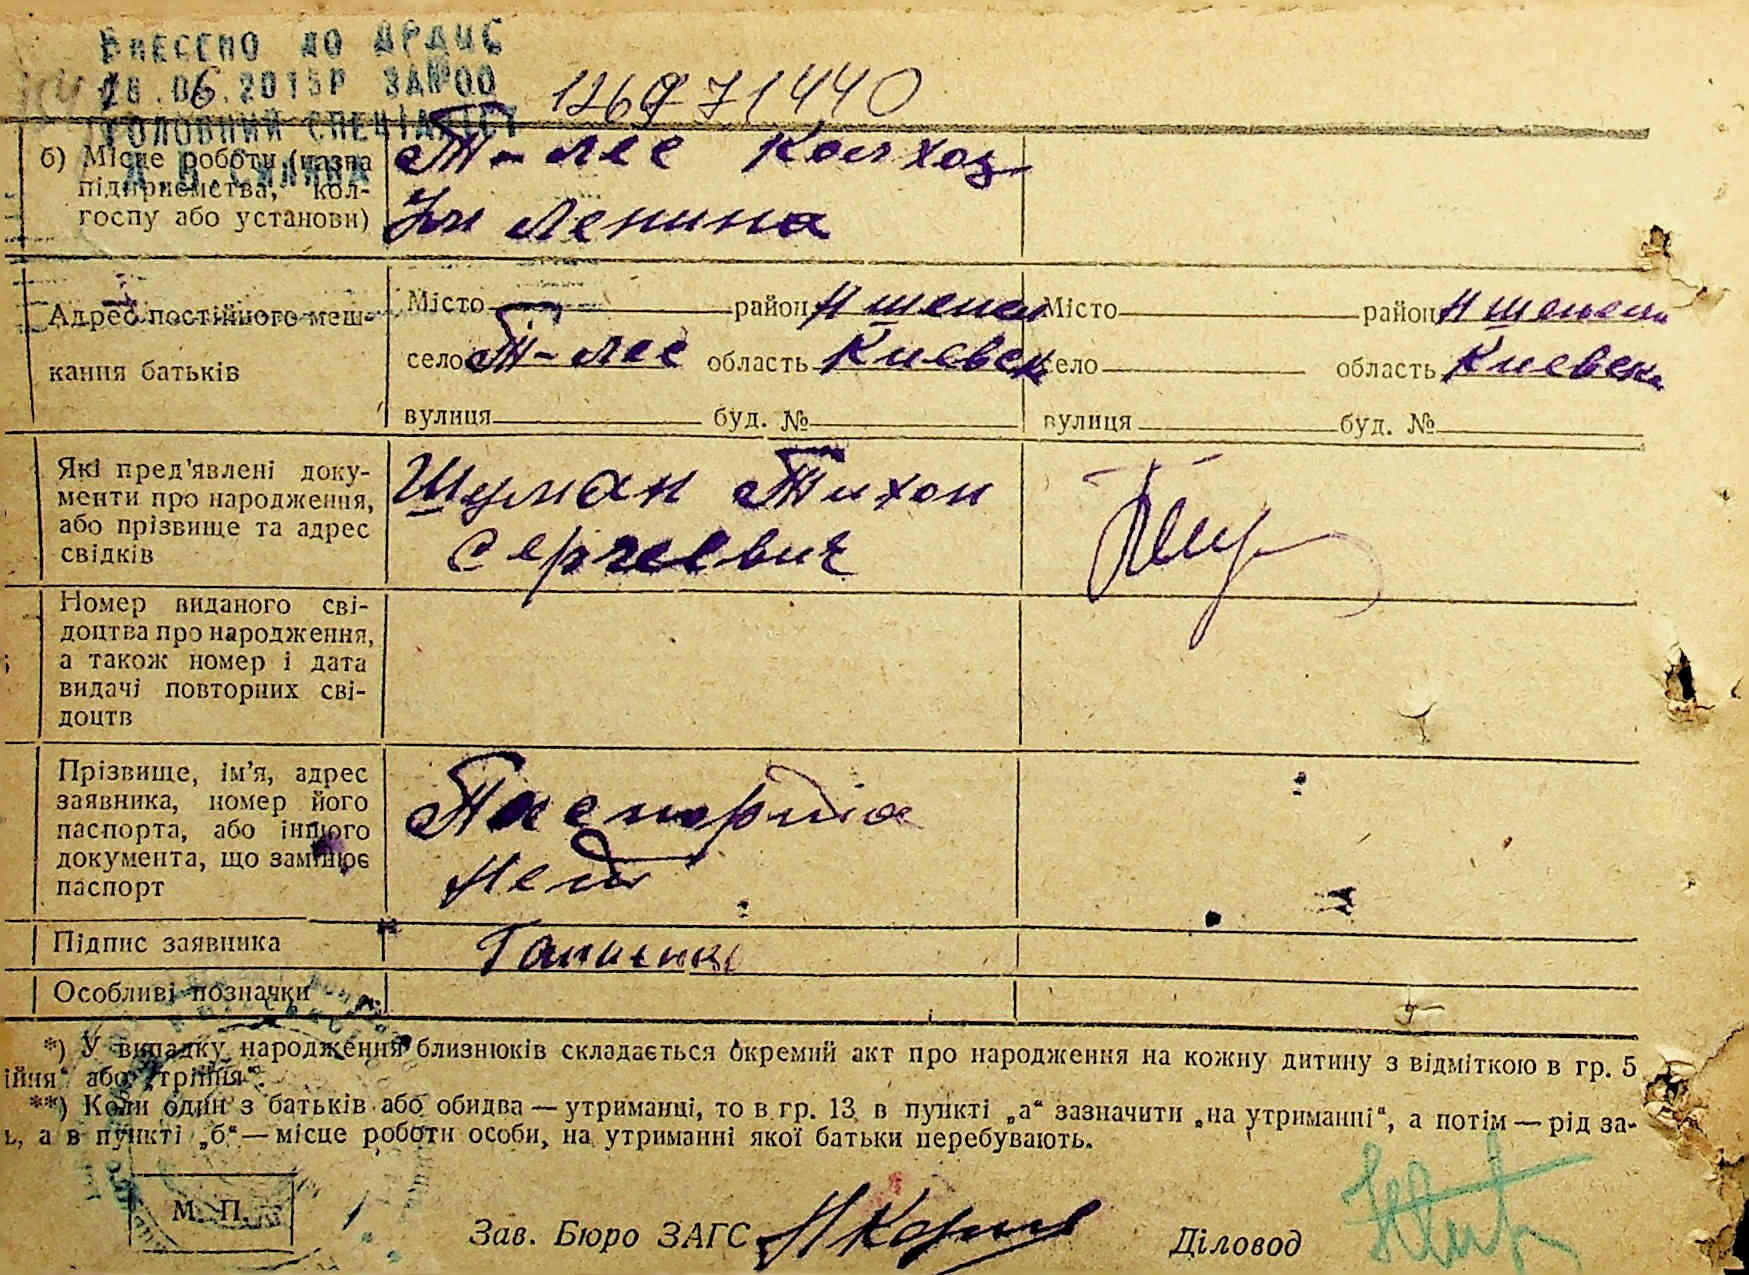 ВНЕСЕНО ДО ДРАЦС
26.06.2015Р ЗА№00 126971440
ГОЛОВНИЙ СПЕЦІАЛІСТ
б) Місце роботи (назва
підприємства, кол-
госпу або установи)
Т-лес Колхоз
Им Ленина
Адрес постійного меш-
кання батьків
Місто район село Т-лес область Киевск
вулиця буд. №
Місто район село область Киевск
вулиця буд. №
Які пред'явлені доку-
менти про народження,
або прізвище та адрес
свідків
Шуман Тихон
Сергеевич
Номер виданого сві-
доцтва про народження,
а також номер і дата
видачі повторних сві-
доцтв
Прізвище, ім'я, адрес
заявника, номер його
паспорта, або іншого
документа, що замінює
паспорт
Паспорта
Нет
Підпис заявника
Особливі позначки
*) У випадку народження близнюків складається окремий акт про народження на кожну дитину з відміткою в гр. 5
ійня“ або „трійня“.
**) Коли один з батьків або обидва — утриманці, то в гр. 13 в пункті „а“ зазначити „на утриманні“, а потім — рід за-
ь, а в пункті „б“ — місце роботи особи, на утриманні якої батьки перебувають.
М. П.
Зав. Бюро ЗАГС
Діловод